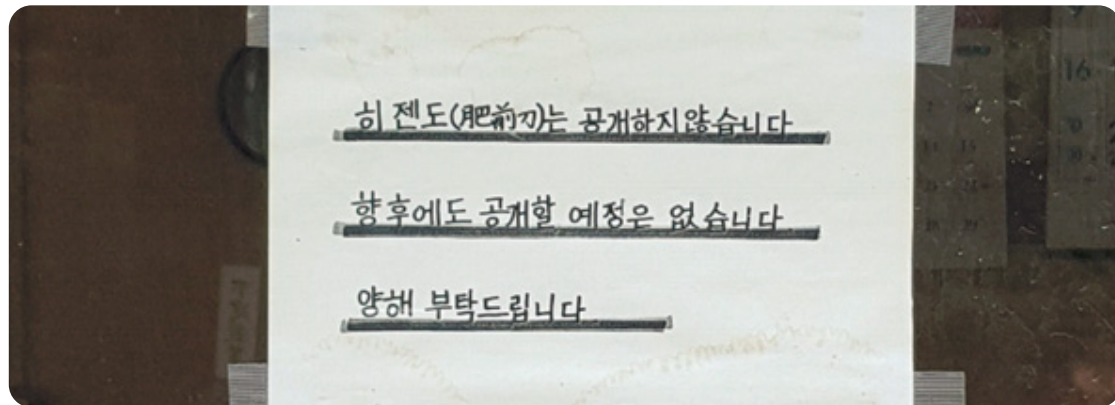 히젠도(肥前刀)는 공개하지않습니다
향후에도 공개할 예정은 없습니다
양해 부탁드립니다
16